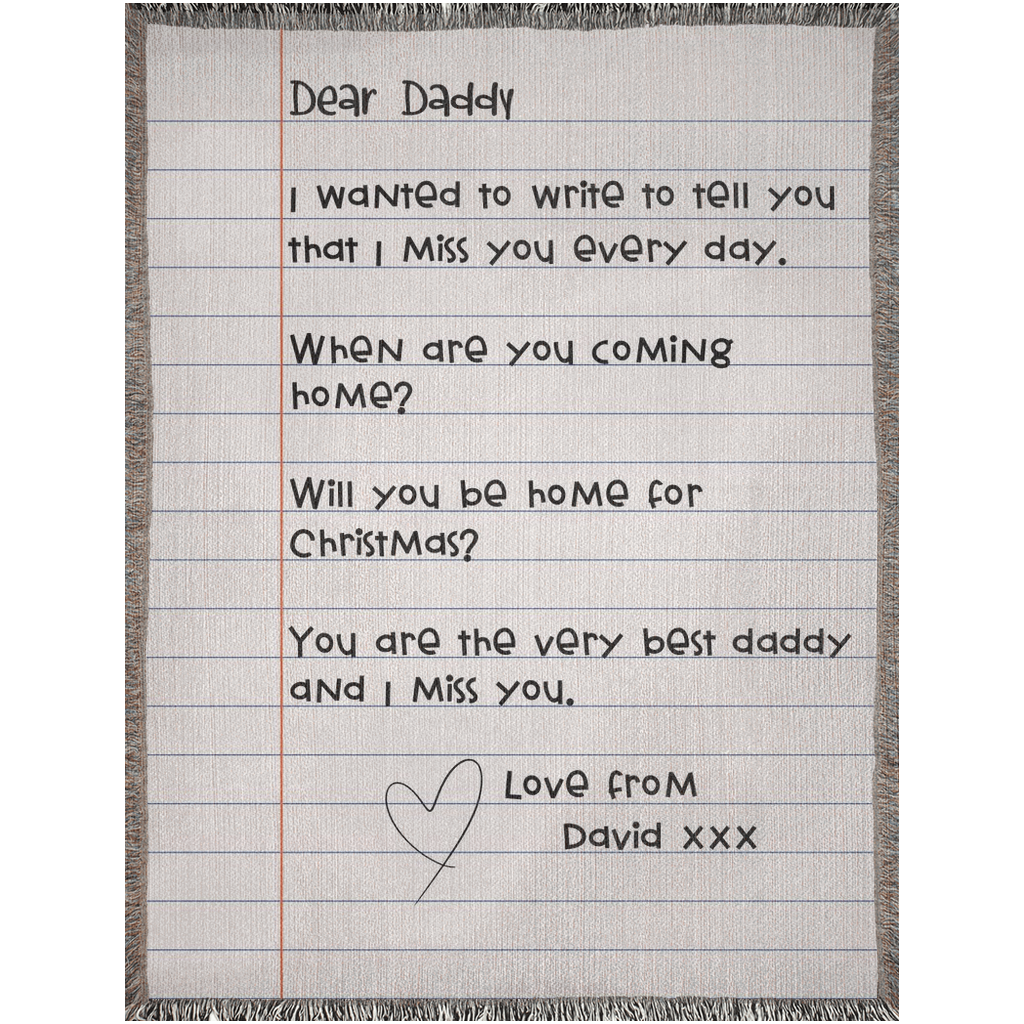 Dear Daddy
I wanted to write to tell you
that I Miss you every day.
When are you coming
home?
Will you be home for
Christmas?
You are the very best daddy
and I Miss you.
Love from
David xxx